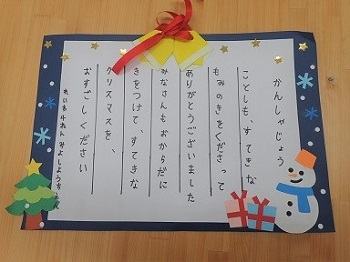 かんしゃじょう
ことしも、すてきな
もみのきをくださって
ありがとうございました
みなさんもおからだに
きをつけて、すてきな
クリスマスを、
おすごしください